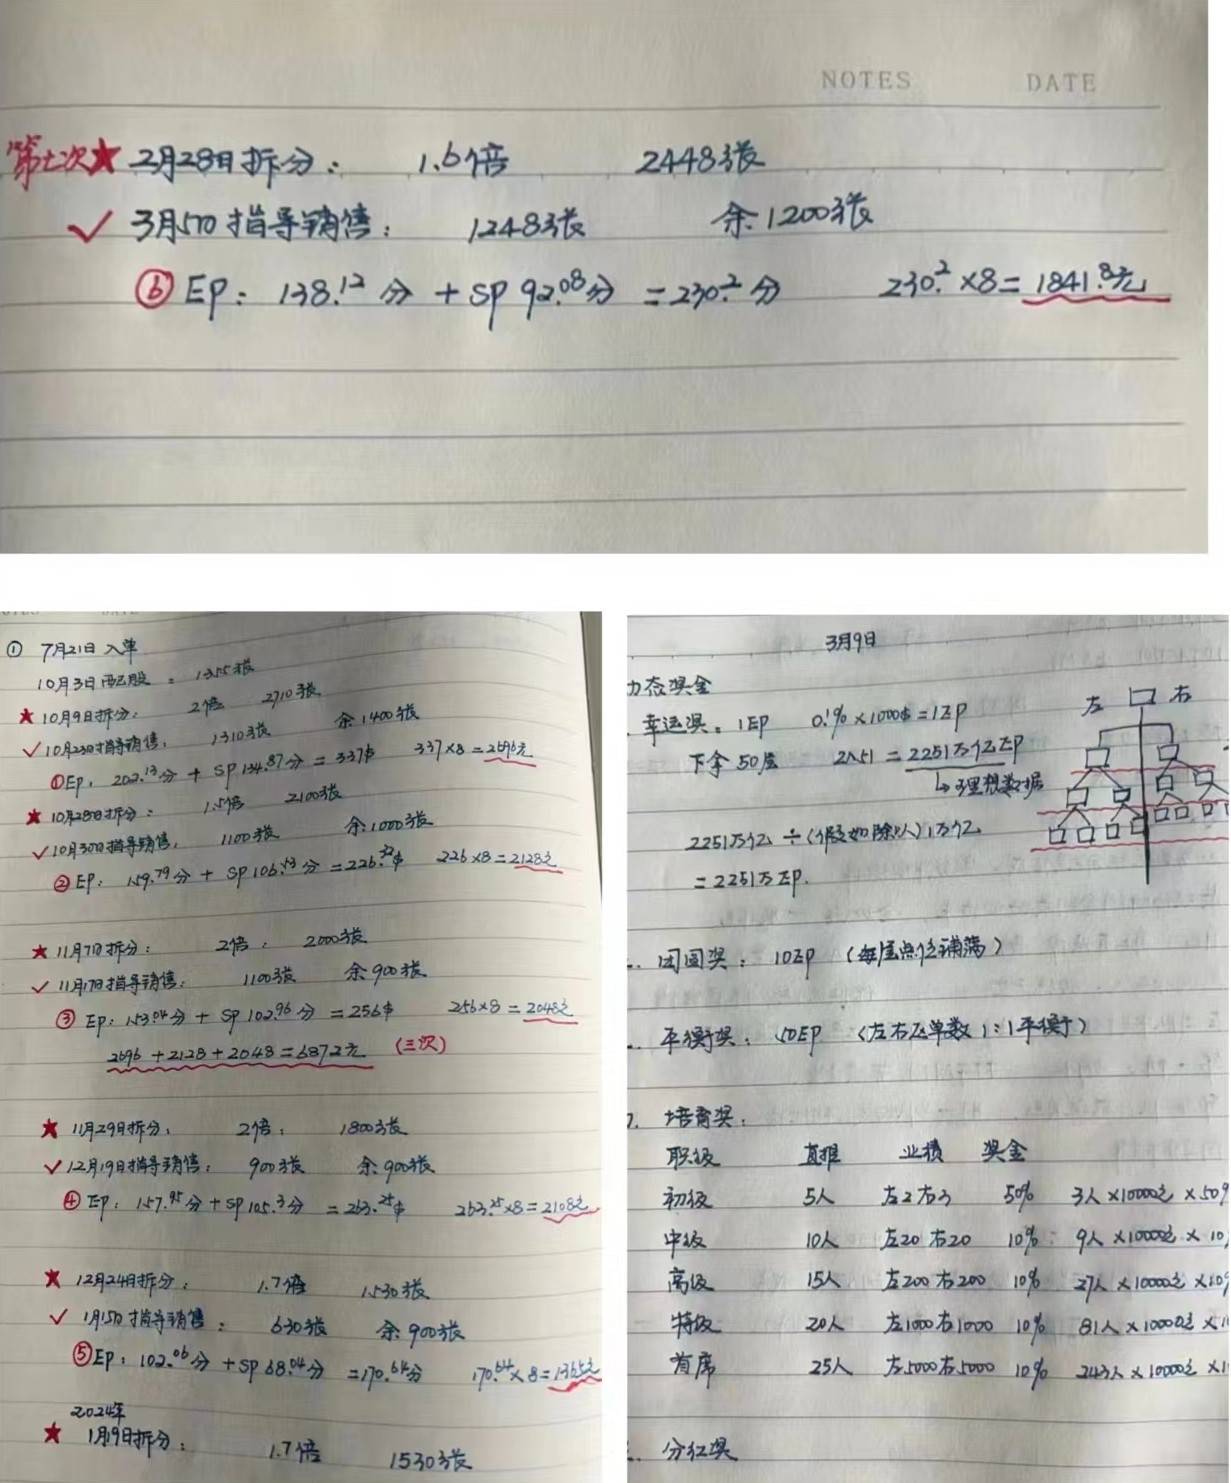 NOTES DATE
第七次★ 2月28日拆分： 1.6倍 2448张
✓ 3月5日指导销售： 1248张 余1200张
⑥ EP：138.12分 + SP 92.08分 = 230.2分 230.2×8= 1841.8元
① 7月21日入单
10月3日配股： 1355张
★ 10月9日拆分： 2倍 2710张
✓ 10月23日指导销售： 1310张 余1400张
①EP：202.13分 + SP 134.87分 = 337$ 337×8=2696元
★ 10月28日拆分： 1.5倍 2100张
✓ 10月30日指导销售： 1100张 余1000张
②EP： 159.79分 + SP 106.53分 =226.$ 226×8=2128元
★ 11月7日拆分： 2倍： 2000张
✓ 11月17日指导销售： 1100张 余900张
③ EP：153.04分 + SP 102.96分 =256$ 256×8=2048元
2696+2128+2048=6872元 (三次)
★ 11月29日拆分： 2倍： 1800张
✓ 12月19日指导销售： 900张 余900张
④ EP：157.95分+SP 105.3分 =263.25$ 263.25×8=2108元
★ 12月24日拆分： 1.7倍 1530张
✓ 1月5日指导销售： 630张 余900张
⑤EP：102.06分 +SP 68.04分 =170.64分 170.64×8=1365元
2024年
★ 1月19日拆分： 1.7倍 1530张
3月9日
力态奖金
幸运奖：1EP 0.1%×1000$=1EP
左 右
下拿50层 2∧51 =2251万亿EP
↳理想数据
2251万亿÷(假如除以)1万亿
=2251万EP.
团圆奖： 10EP (每层点位铺满)
平衡奖： 50EP (左右区单数1:1平衡)
培育奖：
职级 直推 业绩 奖金
初级 5人 左2右3 50% 3人×10000元×50%
中级 10人 左20右20 10% 9人×10000元×10
高级 15人 左200右200 10% 27人×10000元×10%
特级 20人 左1000右1000 10% 81人×10000元×1
首席 25人 左5000右5000 10% 243人×10000元×1
分红奖